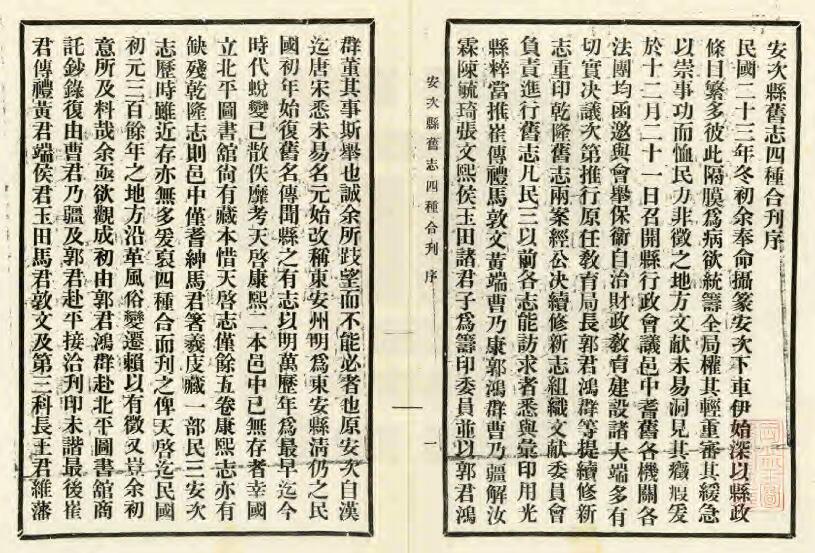 安次縣舊志四種合刊序
民國二十三年冬初余奉命攝篆安次下車伊始深以縣政
條目繁多彼此隔膜爲病欲統籌全局權其輕重審其緩急
以崇事功而恤民力非徵之地方文獻未易洞見其癥瘕爰
於十二月二十一日召開縣行政會議邑中耆舊各機關各
法團均函邀與會舉保衛自治財政敎育建設諸大端多有
切實決議次第推行原任敎育局長郭君鴻群等提續修新
志重印乾隆舊志兩案經公決續修新志組織文獻委員會
負責進行舊志凡民三以前各志能訪求者悉與彙印用光
縣粹當推崔傳禮馬敦文黃端曹乃康郭鴻群曹乃疆解汝
霖陳毓琦張文熙侯玉田諸君子爲籌印委員並以郭君鴻
安次縣舊志四種合刊 序
一
群董其事斯舉也誠余所跂望而不能必者也原安次自漢
迄唐宋悉未易名元始改稱東安州明爲東安縣淸仍之民
國初年始復舊名傳聞縣之有志以明萬歷年爲最早迄今
時代蛻變已散佚靡考天啓康熙二本邑中已無存者幸國
立北平圖書舘尙有藏本惜天啓志僅餘五卷康熙志亦有
缺殘乾隆志則邑中僅耆紳馬君箸羲庋藏一部民三安次
志歷時雖近存亦無多爰裒四種合而刊之俾天啓迄民國
初元三百餘年之地方沿革風俗變遷賴以有徵又豈余初
意所及料哉余亟欲觀成初由郭君鴻群赴北平圖書舘商
託鈔錄復由曹君乃疆及郭君赴平接洽刊印未諧最後崔
君傳禮黃君端侯君玉田馬君敦文及第三科長王君維藩